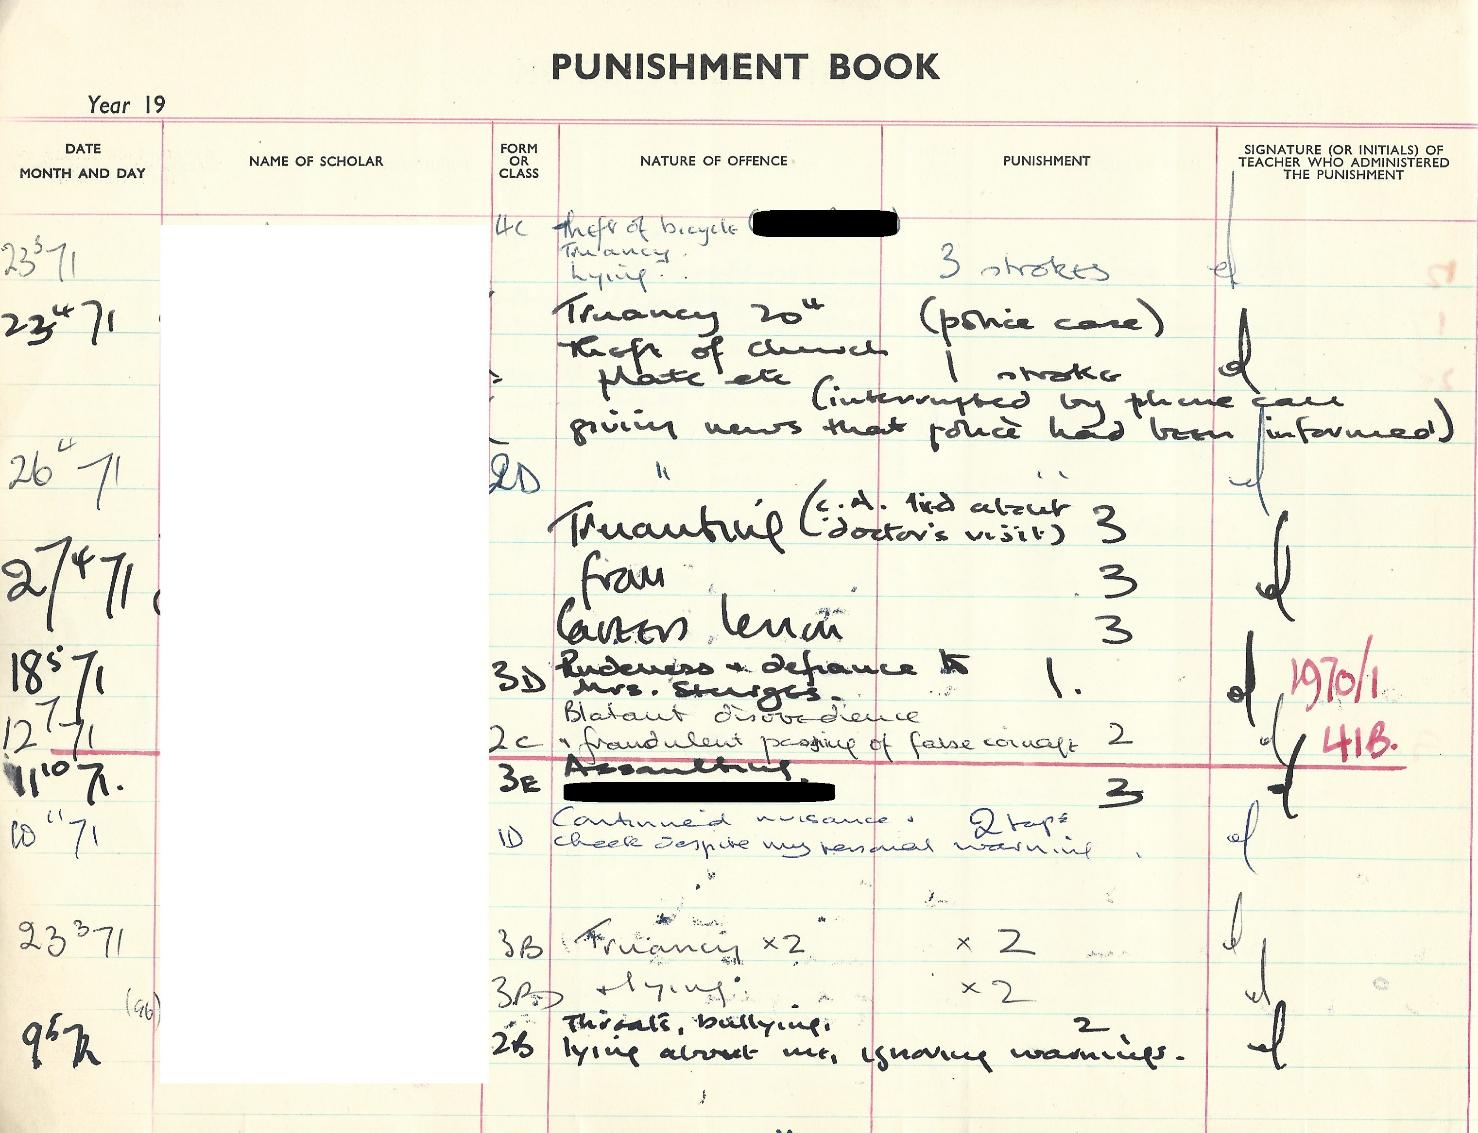 PUNISHMENT BOOK
Year 19
DATE
MONTH AND DAY
NAME OF SCHOLAR
FORM
OR
CLASS
NATURE OF OFFENCE
PUNISHMENT
SIGNATURE (OR INITIALS) OF
TEACHER WHO ADMINISTERED
THE PUNISHMENT
4C theft of bicycle (
Truancy.
23 71 Lying. 3 strokes
23 4 71 Truancy 20 4 (police case)
theft of church
plate etc 1 stroke
(interrupted by phone call
giving news that police had been informed)
26 4 71 2D " "
Truanting (c.A. lied about
doctor's visit) 3
27 4 71 from 3
Careers lesson 3
18 5 71 3D Rudeness + defiance to 1. 1970/1
Mrs. Sturges.
Blatant disobedience
12 7 71 2C + fraudulent passing of false coinage 2 41B.
11 10 71. 3E Assaulting 3
10 11 71 1D Continued nuisance + 2 taps
cheek despite my personal warning.
23 3 71 3B Truancy x2 x 2
+ lying. x 2
(96)
Threats, bullying, 2
9 5 72 2B lying about me, ignoring warnings.